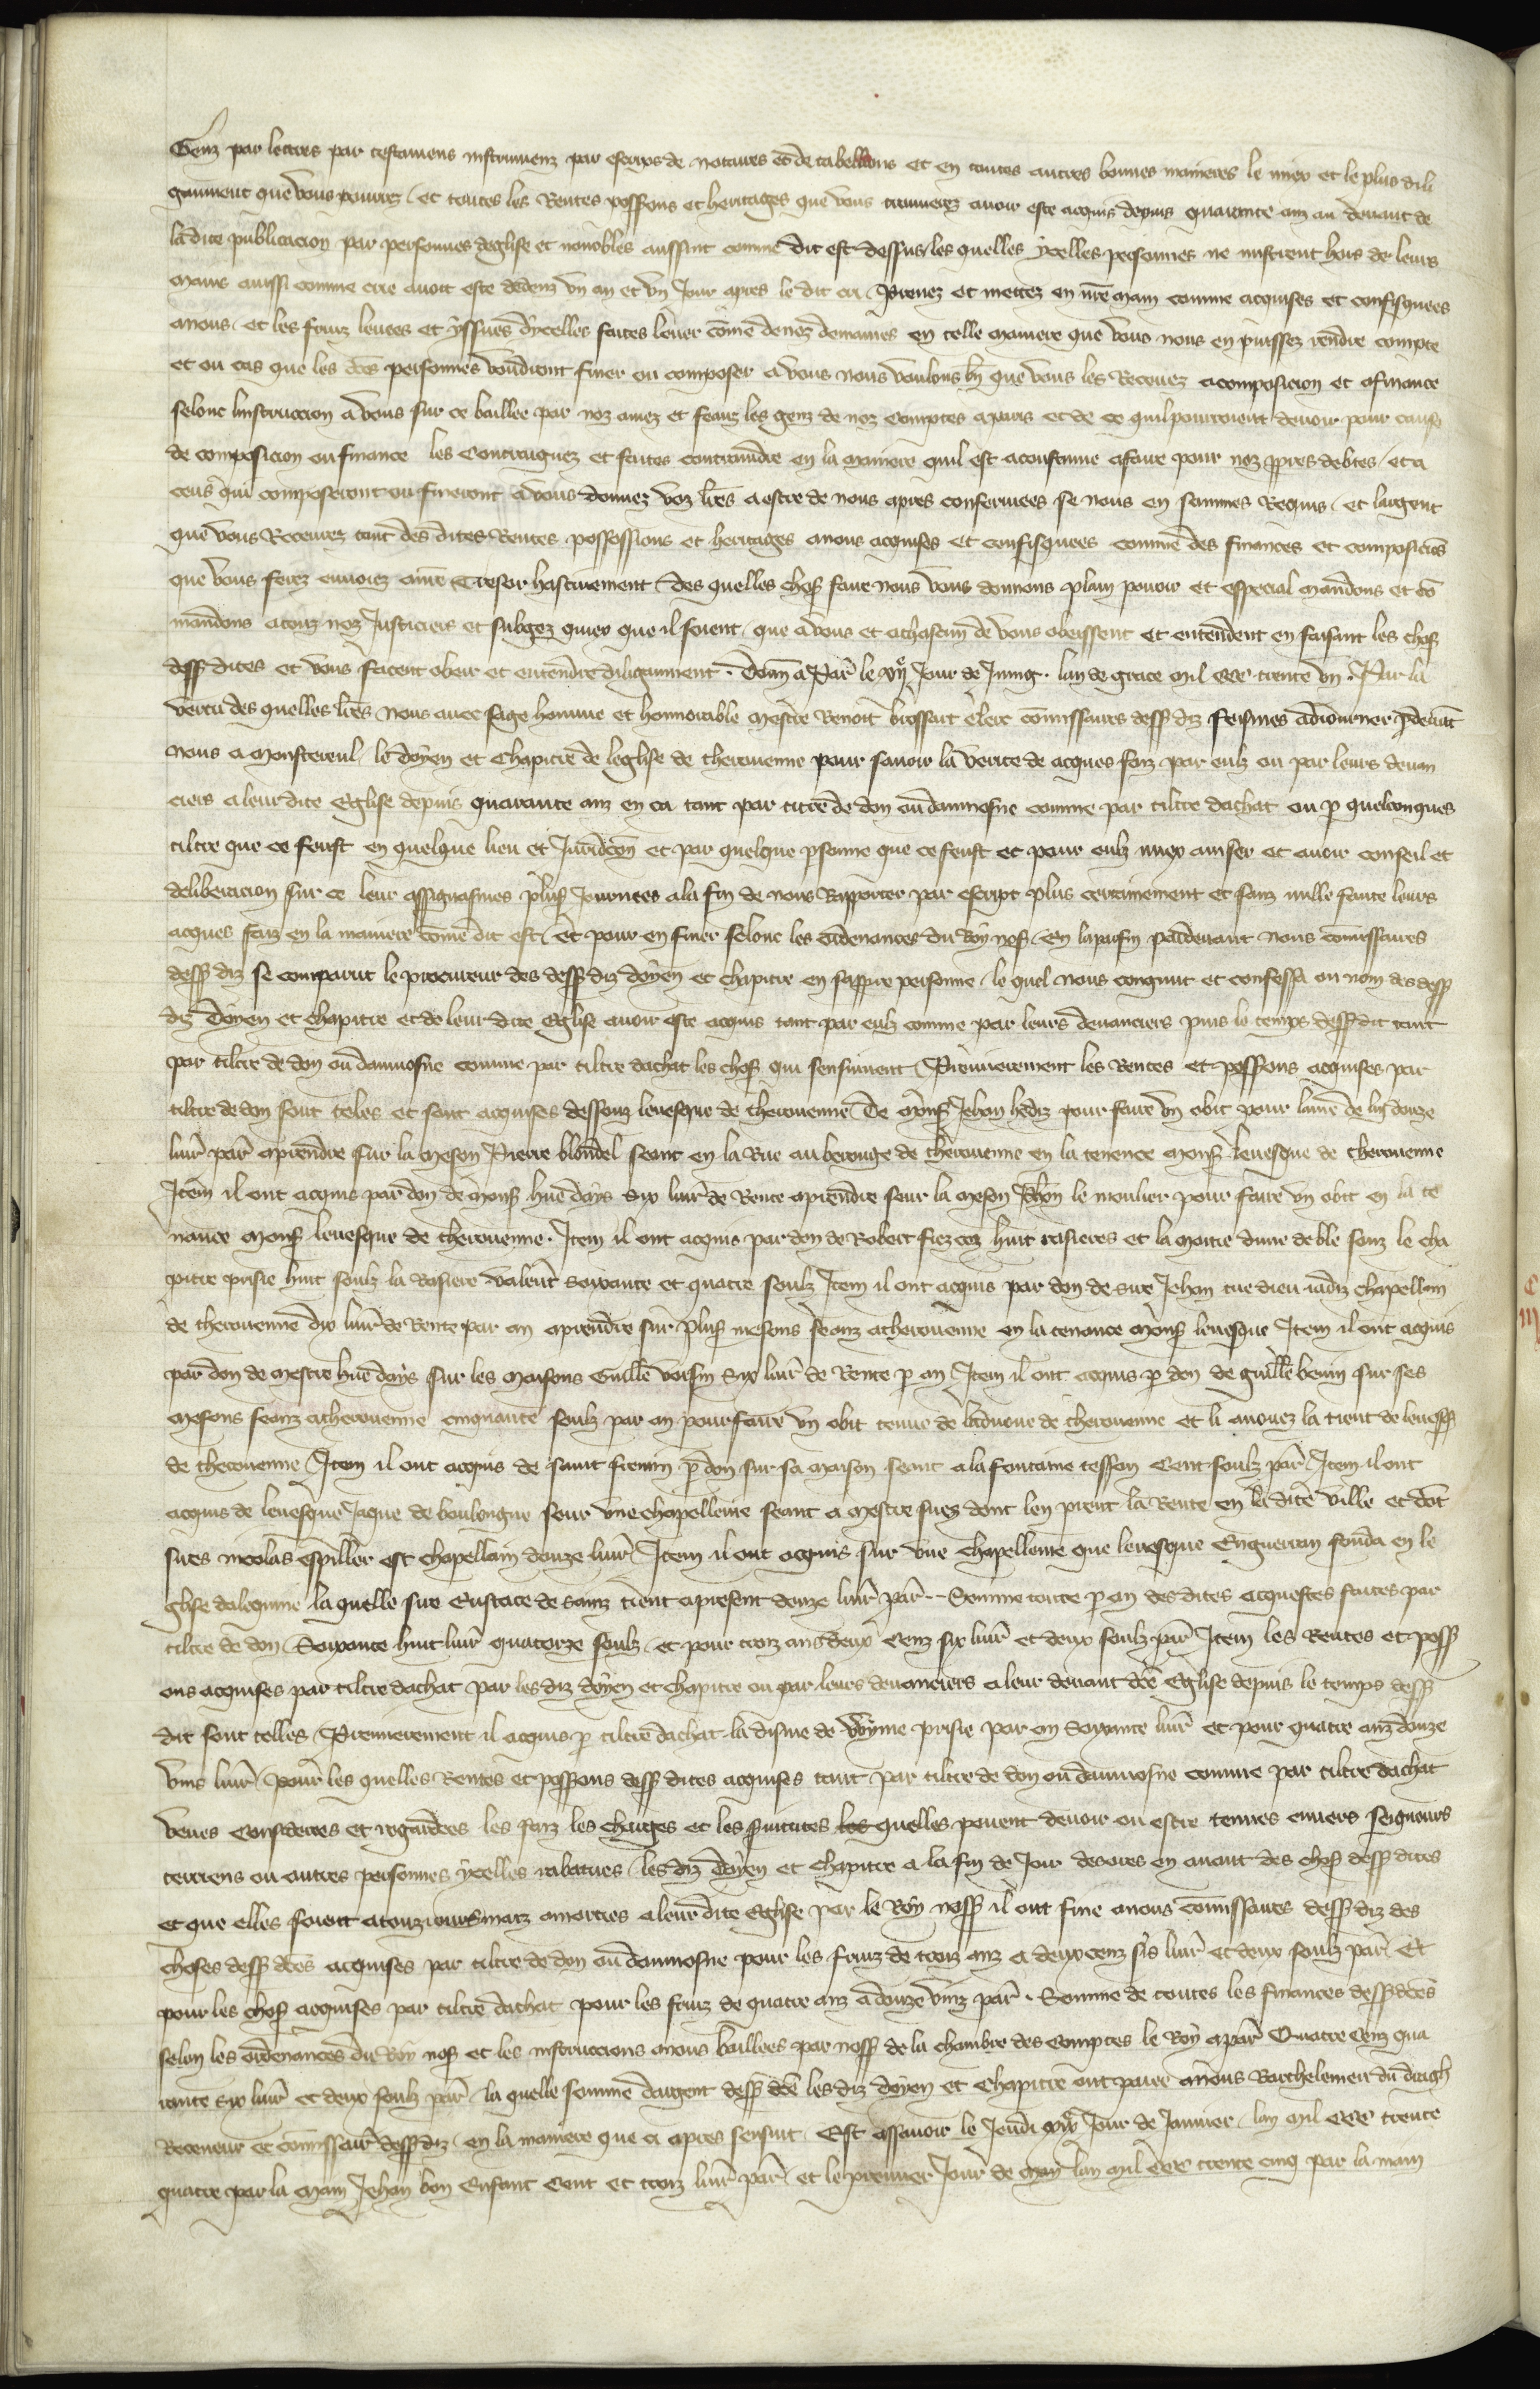 Genz par lettres par testamens instrumenz par escrips de notaires et de tabellions et en toutes autres bonnes manieres le miex et le plus dili
gaument que vous pourrez et toutes les Rentes possessons et heritages que vous trouverez avoir este acquis depuis quarante anz au devant de
la dite publicacion par personnes deglise et nonobles aussint comme dit est dessus les quelles ycelles personnes ne mistrent hors de leurs
mains aussi comme crie avoit este dedenz un an et un Jour apres le dit cri Prenez et mettez en nre main comme acquises et confisquees
anous et les fruiz levees et yssues dycelles faites lever come de noz demaines en telle maniere que vous nous en puissez rendre compte
et ou cas que les dces personnes voudront finer ou composer a vous nous voulons bn que vous les Recevez acomposicion et afinance
selonc linstruccion a vous sur ce baillee par noz amez et feauz les genz de noz Comptes aparis et de ce quil pourroient devoir pour cause
de composicion ou finance les Contraignez et faites contraindre en la maniere quil est acoustume afaire pour noz ppres debtes et a
ceus qui composeront ou fineront a vous donnez voz lres a estre de nous apres confermees se nous en sommes Requis et largent
que vous Recevrez tant des dites Rentes possessions et heritages anous acquises et confisquees comme des finances et composicios
que vous ferez envoiez anre Tresor hastivement des quelles chos faire nous vous donnons plain pouoir et especial mandons et co
mandons atouz noz Justiciers et subgez quiex que il soient que a vous et achascun de vous obeissent et entendent en faisant les chos
dess dites et vous facent obeir et entendre diligaument . Donn a Par le xije Jour de Juing . lan de grace mil ccc trente un . Par la
vertu des quelles lres Nous avec sage homme et honnorable Mestre Benoit brossart clerc comissaires dess diz feismes adiourner pdevat
nous a Monstereul le doyen et Chapitre de leglise de therouenne pour savoir la verite de acques faiz par eulz ou par leurs devan
ciers aleur dite Eglise depuis quarante anz en ca tant par titre de don ou daumosne comme par tiltre dachat ou p quelconques
tiltre que ce feust en quelque lieu et Juridicon et par quelque psonne que ce feust et pour eulz miex aviser et avoir conseil et
deliberacion sur ce leur assignasmes plus Journees ala fin de nous Rapporter par escript plus certainement et sanz nulle faute leurs
acques faiz en la maniere come dit est Et pour en finer selonc les ordenances du Roy nos En laparfin pardevant nous comissaires
dess diz se comparut le procureur des dess diz doyen et chapitre en sa ppre personne le quel nous congnut et confessa ou nom des dess
diz doyen et chapitre et de leur dite Eglise avoir este acquis tant par eulz comme par leurs devanciers puis le temps dess dit tant
par tiltre de don ou daumosne comme par tiltre dachat les chos qui sensuivent Premierement les Rentes et possions acquises par
tiltre de don sont teles et sont acquises dessouz levesque de therouenne De Mons Jehan hediz pour faire un obit pour lame de luy douze
livr par aprendre sur la meson Pierre blondel seant en la Rue au beronge de therouenne en la tenence Mons levesque de therouenne
Item il ont acquis par don de Mons hue days Six livr de Rente aprendre seur la meson Jehan le moulier pour faire un obit en la te
nance Mons levesque de therouenne . Item il ont acquis par don de Robert fiezcoz huit rasieres et la moitie dune de ble souz le cha
pitre prisie huit soulz la Rasiere valent soixante et quatre soulz Item il ont acquis par don de sire Jehan tue dieu iadiz chapellain
de therouenne dix livr de Rente par an aprendre sur plus mesons seanz atherouenne en la tenance Mons levesque Item il ont acquis
par don de Mestre hue days sur les maisons Guille voisin Six livr de Rente p an Item il ont acquis p don de guille bevin sur ses
mesons seanz atherouenne cinquante soulz par an pour faire un obit tenue de ladvoue de therouenne et li avouez la tient de levesq
de therouenne Item il ont acquis de saint fremin p don sur sa maison seant ala fontaine tesson Cent soulz par Item il ont
acquis de levesque Jaque de boulongne seur une chapellenie seant a Mestre sues dont len prent la Rente en la dite ville et dot
sires nicolas espiller est chapellain douze livr Item il ont acquis sur une chapellenie que levesque Enguerran fonda en le
glise dalequine la quelle sire Eustace de sainz tient apresent douze livr par – Somme toute p an des dites acquestes faites par
tiltre de don Soixante huit livr quatorze soulz et pour trois ans deux Cenz six livr et deux soulz par Item les Rentes et poss
ons acquises par tiltre dachat par les diz doyen et chapitre ou par leurs devanciers a leur devant dce Eglise depuis le temps dess
dit sont telles Premierement il acquis p tiltre dachat la disme de prisie par an Soixante livr et pour quatre anz douze
vins livr Pour les quelles Rentes et possons dess dites acquises tant par tiltre de don ou daumosne comme par tiltre dachat
veues considerees et regardees les faiz les charges et les servitutes les quelles pouent devoir ou estre tenues envers seigneurs
terriens ou autres personnes ycelles rabatues les diz doyen et chapitre a la fin de Joir desores en avant des chos dess dites
et que elles soient atouziours maiz amorties aleur dite Eglise par le Roy noss il ont fine anous comissaires dess diz des
choses dess dces acquises par tiltre de don ou daumosne pour les fruiz de trois anz a deux cenz sis livr et deux soulz par Et
pour les chos acquises par tiltre dachat pour les fruiz de quatre anz a douze vinz par . Somme de toutes les finances dess dces
selon les ordenances du Roy nos et les instruccions anous baillees par noss de la chambre des Comptes le Roy apar Quatre cenz qua
rante six livr et deux soulz par la quelle somme dargent dess dce les diz doyen et chapitre ont paiee anous Barthelemieu du drach
Receveur et comissair dess diz en la maniere que ci apres sensuit Est assavoir le Jeudi Jour de Janvier lan mil ccc trente
quatre par la main Jehan bon Enfant Cent et trois livr par et le premier Jour de May lan mil ccc trente cinq par la main